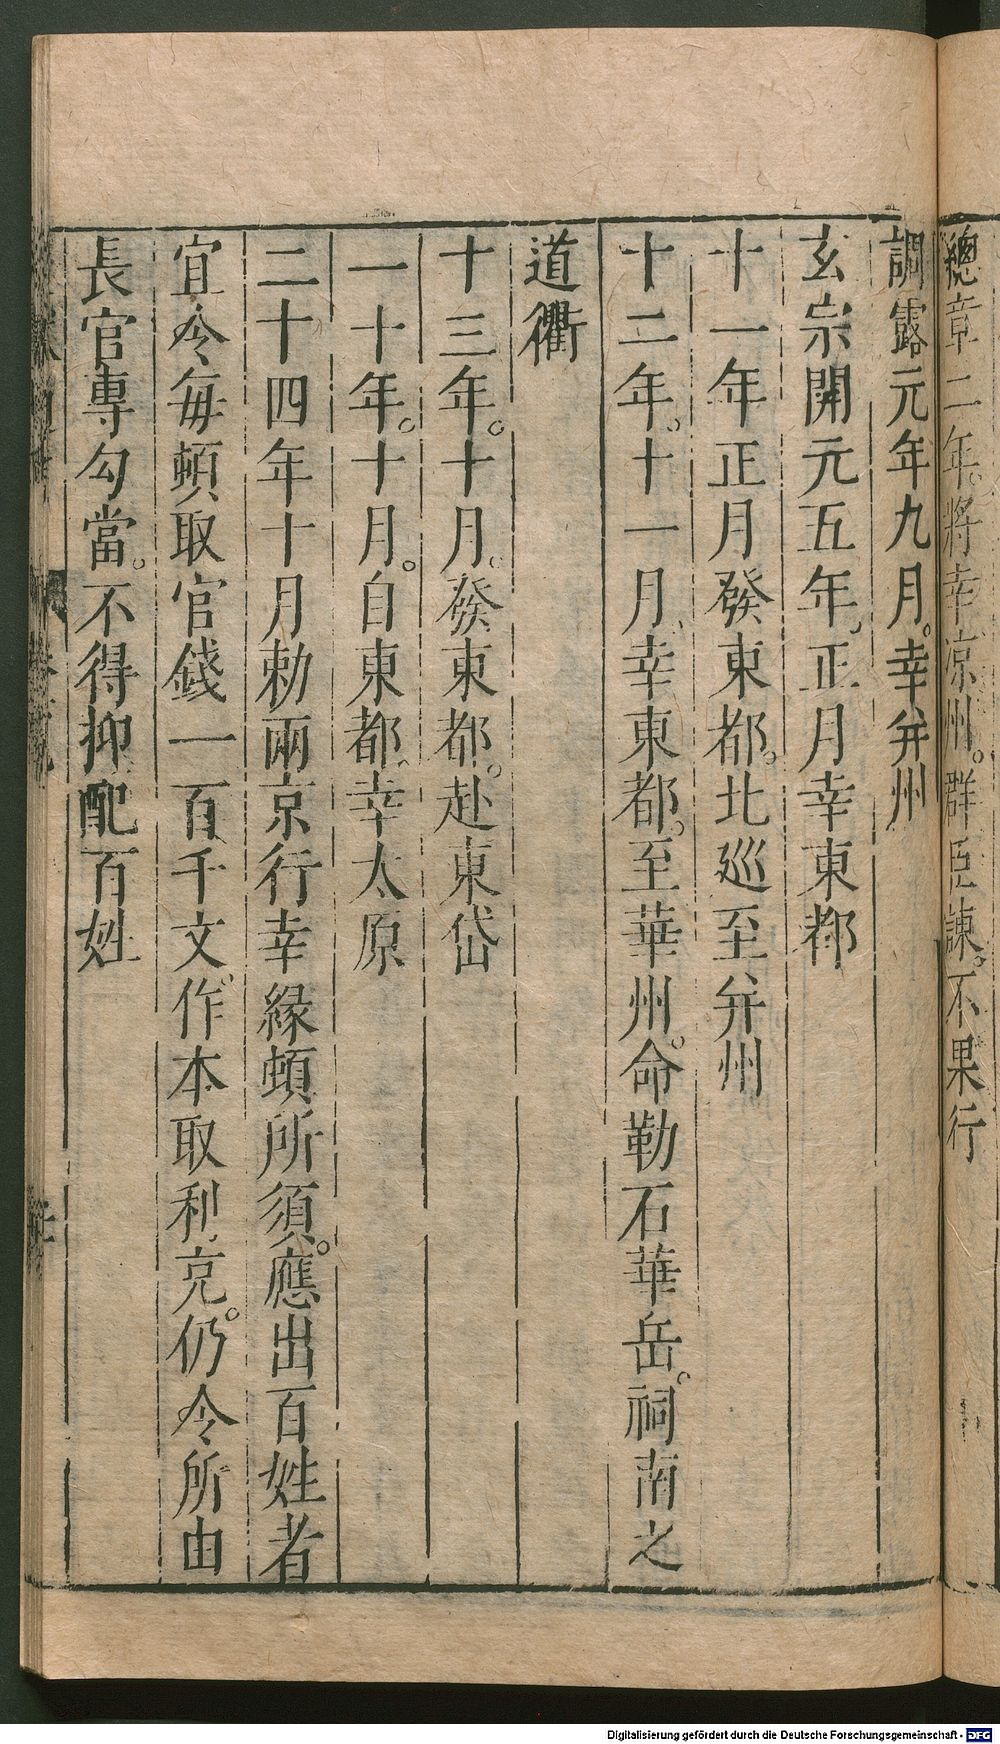 總章二年。將幸涼州。群臣諫。不果行
調露元年九月。幸并州
玄宗開元五年正月幸東都
十一年正月發東都。北廵至并州
十二年。十一月幸東都。至華州。命勒石華岳。祠南之
道衢
十三年。十月。發東都。赴東岱
一十年。十月。自東都幸太原
二十四年十月勅兩京行幸緣頓所須。應出百姓者
宜令每頓取官錢一百千文。作本取利充。仍令所由
長官專勾當。不得抑配百姓
Digitalisierung gefördert durch die Deutsche Forschungsgemeinschaft - DFG